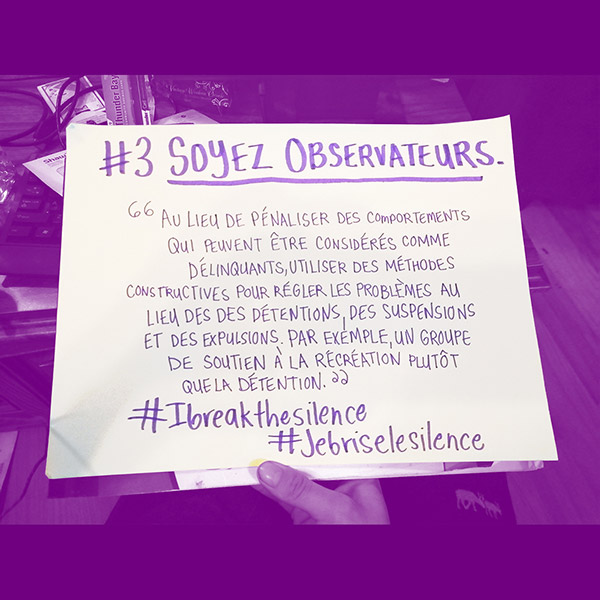 Thunder Bay
#3 SOYEZ OBSERVATEURS.
“AU LIEU DE PÉNALISER DES COMPORTEMENTS
QUI PEUVENT ÊTRE CONSIDÉRÉS COMME
DÉLINQUANTS, UTILISER DES MÉTHODES
CONSTRUCTIVES POUR RÉGLER LES PROBLÈMES AU
LIEU DES DES DÉTENTIONS, DES SUSPENSIONS
ET DES EXPULSIONS. PAR EXEMPLE, UN GROUPE
DE SOUTIEN À LA RÉCRÉATION PLUTÔT
QUE LA DÉTENTION.”
#Ibreakthesilence
#Jebriselesilence